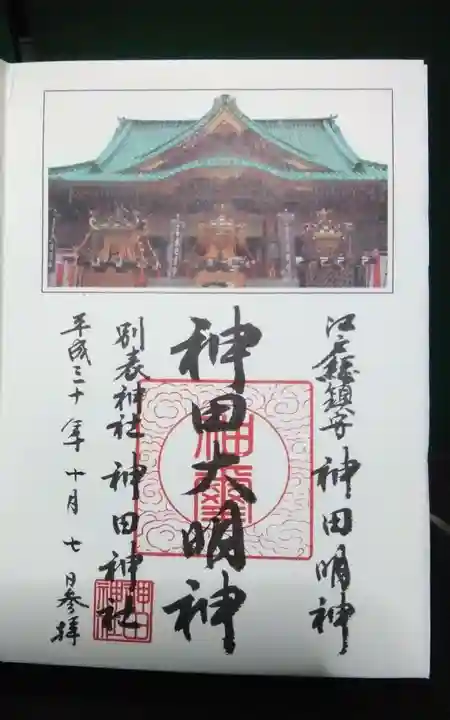 江戸総鎮守 神田明神
神田大明神
別表神社 神田神社
平成三十年十月七日参拝